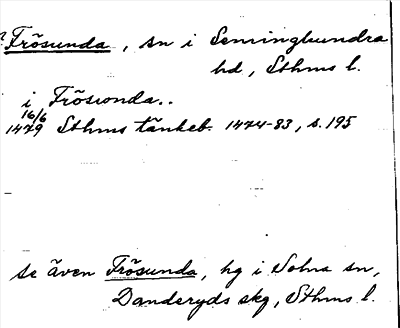 Frösunda, sn i Seminghundra
hd, Sthms l.
i Fröswnda..
16/6
1479 Sthms tänkeb. 1474-83, s. 195
se även Frösunda, hg i Solna sn,
Danderyds skg, Sthms l.